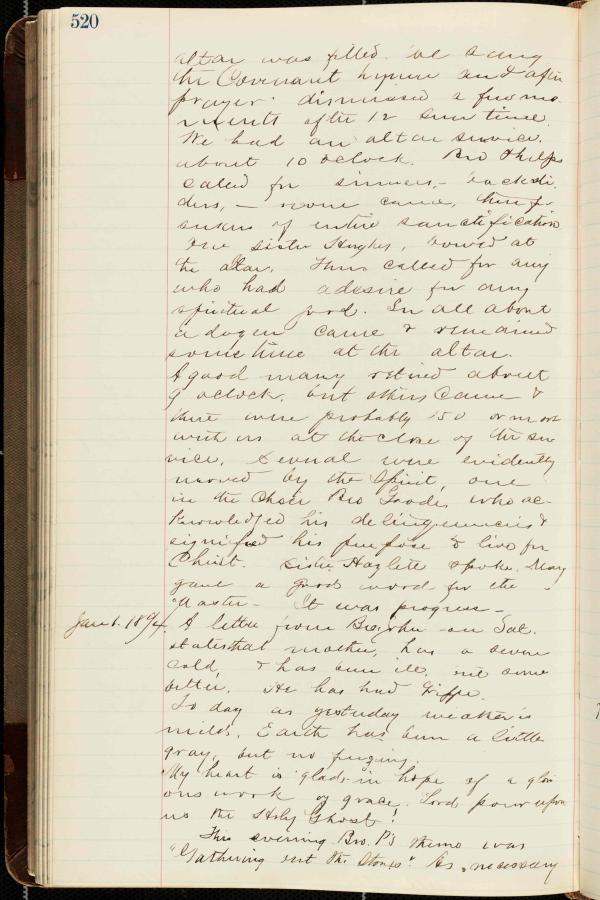 520
altar was filled. We sang
the Covenant hymn and after
prayer dismissed a few mo-
ments after 12 sun time.
We had an altar service.
about 10 oclock. Bro Phelps
called for sinners, - backsli-
ders, - none came, then for
seekers of entire sanctification
One sister Hughes, bowed at
the altar. Then called for any
who had a desire for any
spiritual good. In all about
a dozen came & remained
some time at the altar.
A good many retired about
9 oclock, but others came &
there were probably 150 or more
with us at the close of the ser
vice, Several were evidently
moved by the Spirit, one
in the Choir Bro Goodes who ac-
knowledged his delinquencies &
signified his purpose to live for
Christ. Sister Hazlett spoke. Many
gave a good word for the
Master - It was progress -
Jan 1. 1894. A letter from Bro John on Sat.
states that mother, has a severe
cold, & has been ill, some
better. He has had Grippe.
To day as yesterday weather is
mild, Earth has been a little
gray, but no freezing.
My heart is glad, in hope of a glori
ous work of grace. Lord pour upon
us the Holy Ghost!
This evening Bro. P's theme was
"Gathering out the Stones" As necessary